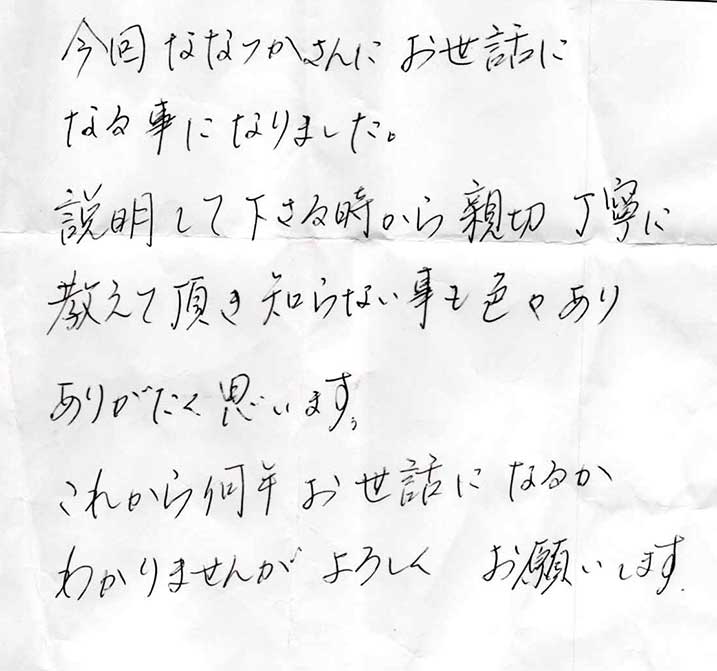 今回ななつかさんにお世話に
なる事になりました。
説明して下さる時から親切丁寧に
教えて頂き知らない事も色々あり
ありがたく思います。
これから何年お世話になるか
わかりませんがよろしくお願いします。